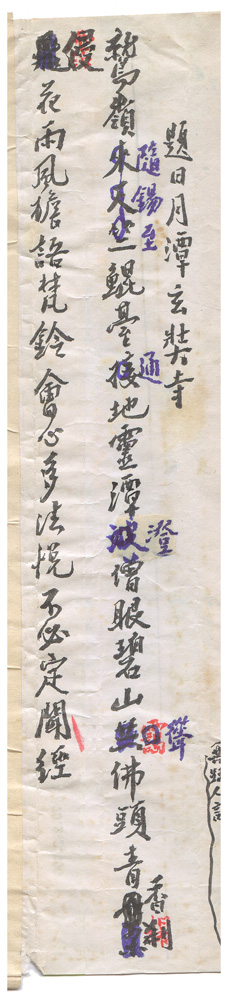 題日月潭玄奘寺
隨錫至
通
澄
聳
鷲嶺來天竺鯤臺接地靈潭波僧眼碧山佛頭青
香刹
優
花雨風檐語梵鈴會心多法悅不必定聞經